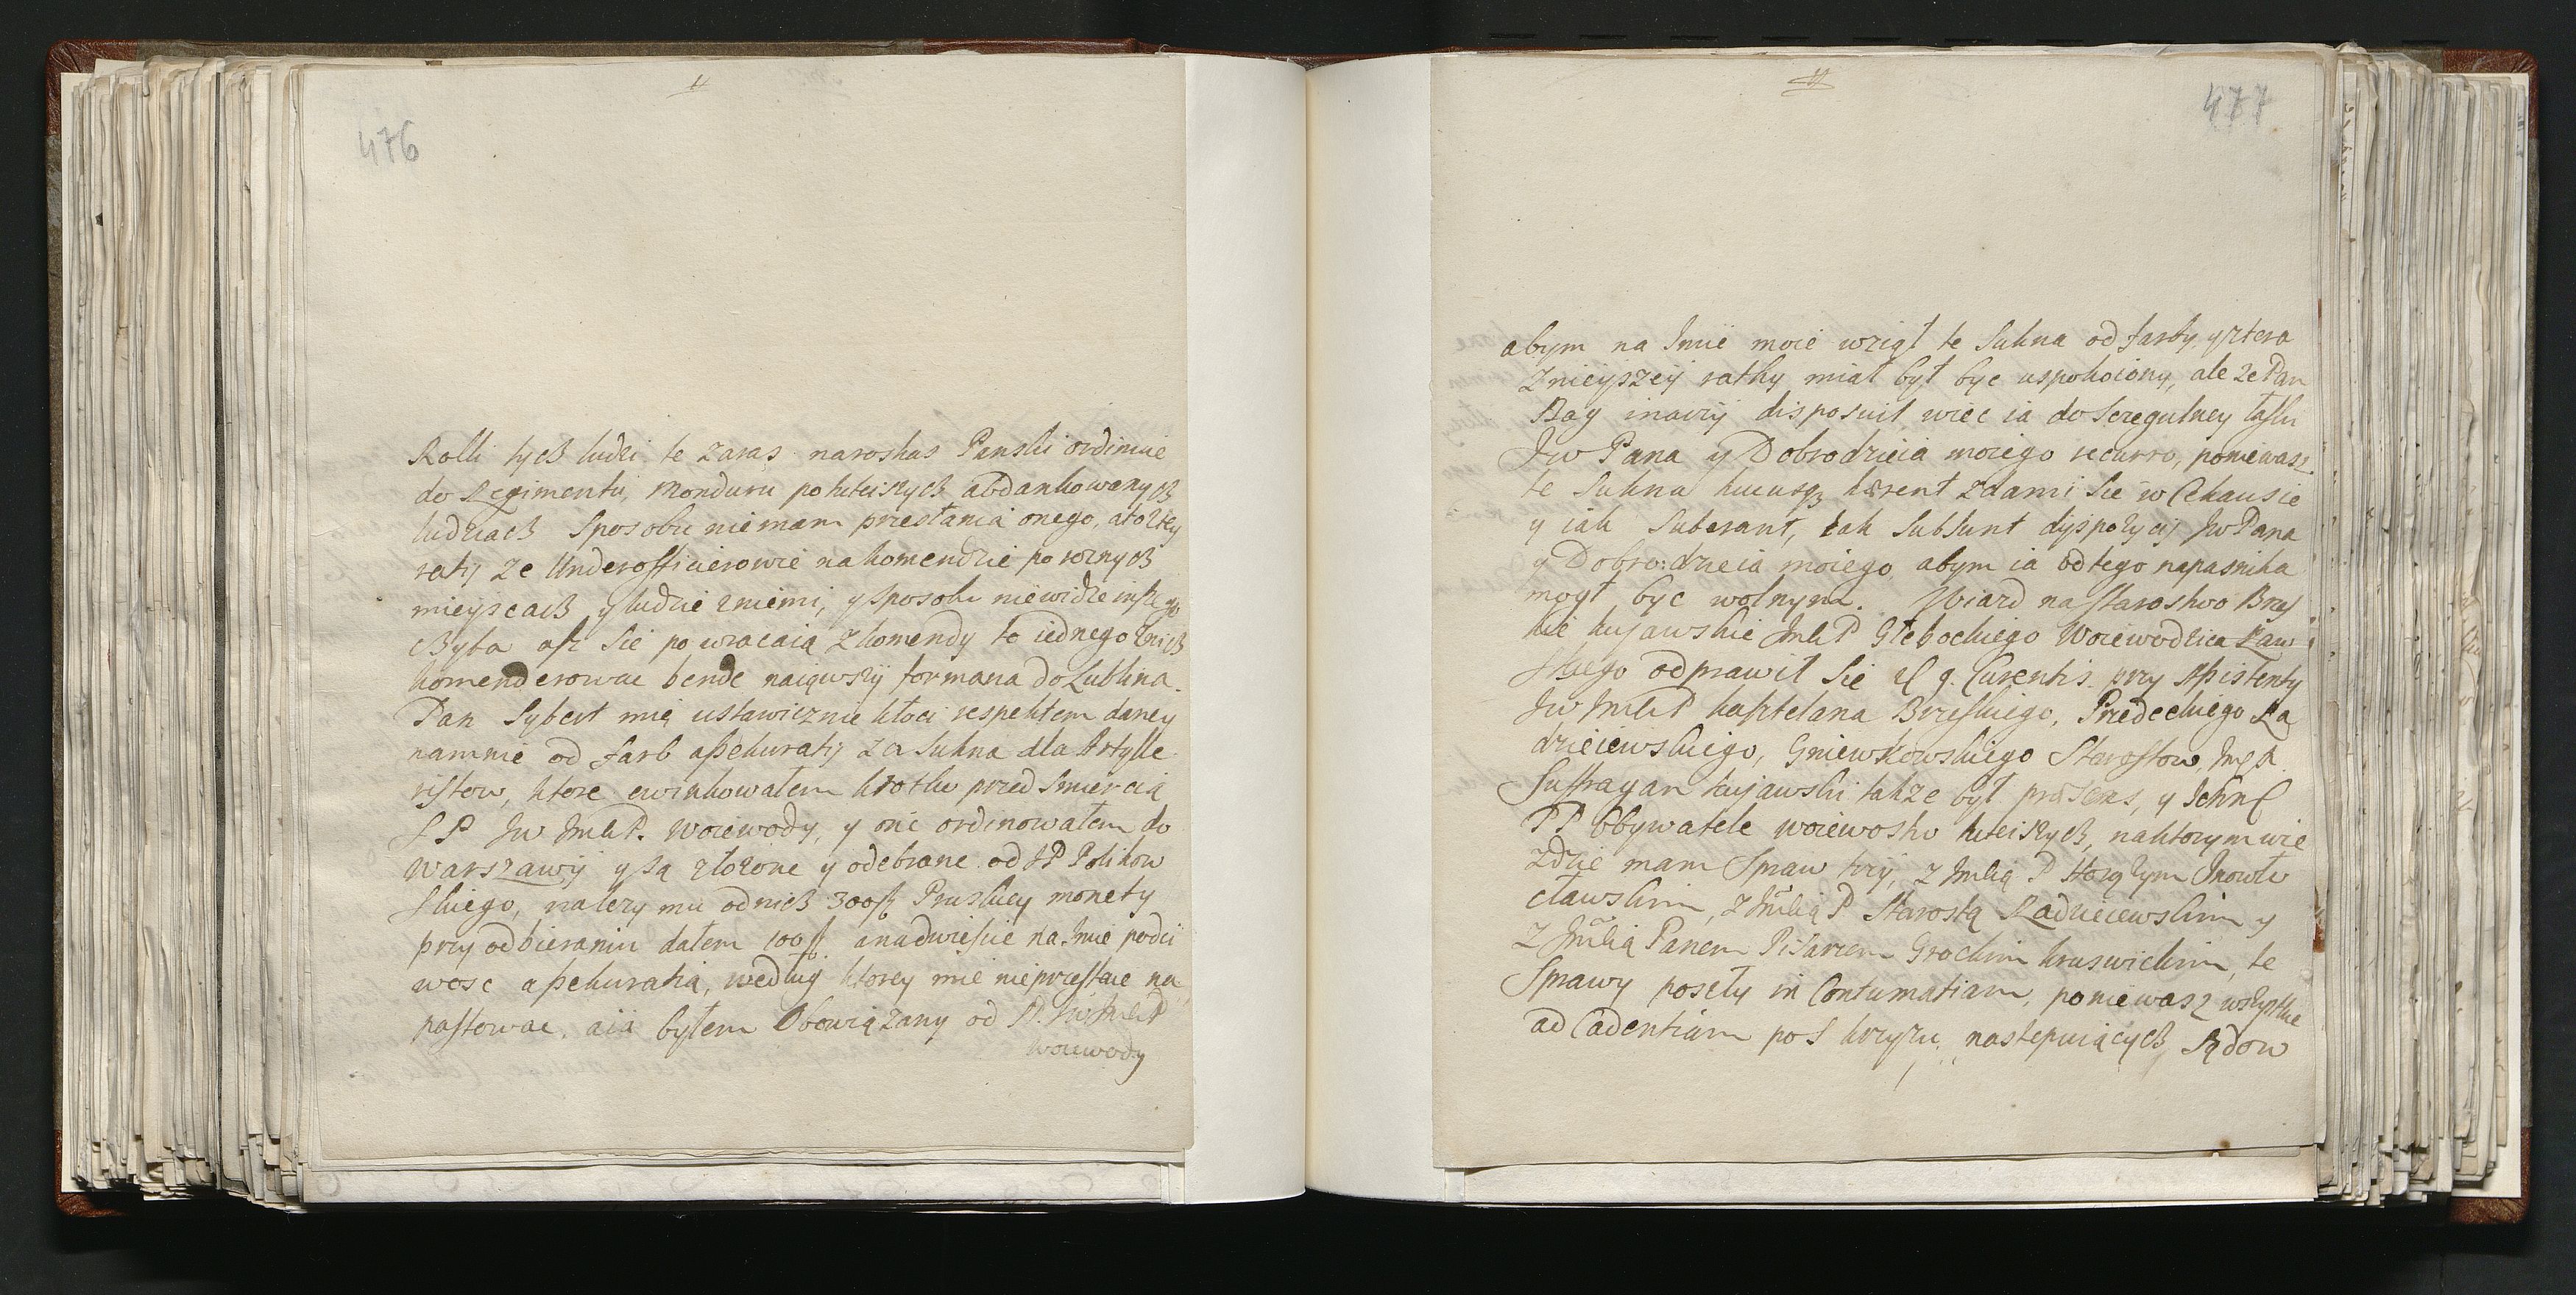 476
Rolli tych ludzi te zaras naroskas Panski ordinuie
do Regimentu, Monduru po tuteiszych abdankowanych
ludziach Sposobu niemam przesłania onego, ato z tey
ratij ze Underofficierowie na komendzie po roznych
mieyscach y ludzie zniemi, y sposobu niewidze inszego
chyba asz sie powracaią z komendy to iednego znich
komenderowac bende naiąwszy formana do Lublina.
Pan Sybert mię ustawicznie kłoci respektem daney
namnie od farb assekuratij za Sukna dla Artylle
ristow, ktore ewinkowałem krotko przed Smiercią
S P Jw ImśP. Woiewody, y one ordinowałem do
Warszawij y są złozone y odebrane od JP Polikow
skiego, nalezy mu odnich 300 fl Pruskiey monety
przy odbieraniu dałem 100 fl. anadwiescie na Imie podci
wosc assekuratią, według ktorey mie nieprzestaie na
pastowac. aia byłem Obowiązany od S P. Jw ImśP
Woiewody
477
abym na Imie moie wziął te Sukna od farby, y ztera
znieyszeij rathy miał był byc uspokoiony, ale ze Pan
Bog inaczij disposuit, wiec ia do Sczegulney łasku
Jw Pana y Dobrodzieia moiego recurro, poniewasz
te Sukna hucusq3 hærent zdami Sie w Cekausie
y iak Suberant, tak Subsunt dyspozycij Jw Pana
y Dobro: dzieia moiego, abym ia od tego napasnika
mogł byc wolnym. Wiazd na Starostwo Brzes
kie kujawskie ImśP Głebockiego Woiewodzica Raw
skiego odprawił Sie d 9. Curentis przy Assistenty
Jw ImśP kasztelana Brzeskiego, Przedeckiego Ra
dzieiewskiego, Gniewkowskiego Starostow, Imę X
Suffragan kujawski takze był præsens, y Ichmć
PP Obywatele woiewostw tuteiszych, naktorym wie
zdzie mam Spraw trzij, z Imścią P Stoią Inowło
cławskim, z Imścią P Starostą Radzieiewskim y
z Imścią Panem Pisarzem Grockim kruswickim, te
Sprawy poszły in Contumatiam, poniewasz wszystkie
ad Cadentiam po S krzyzu, nastepuiących Sądow